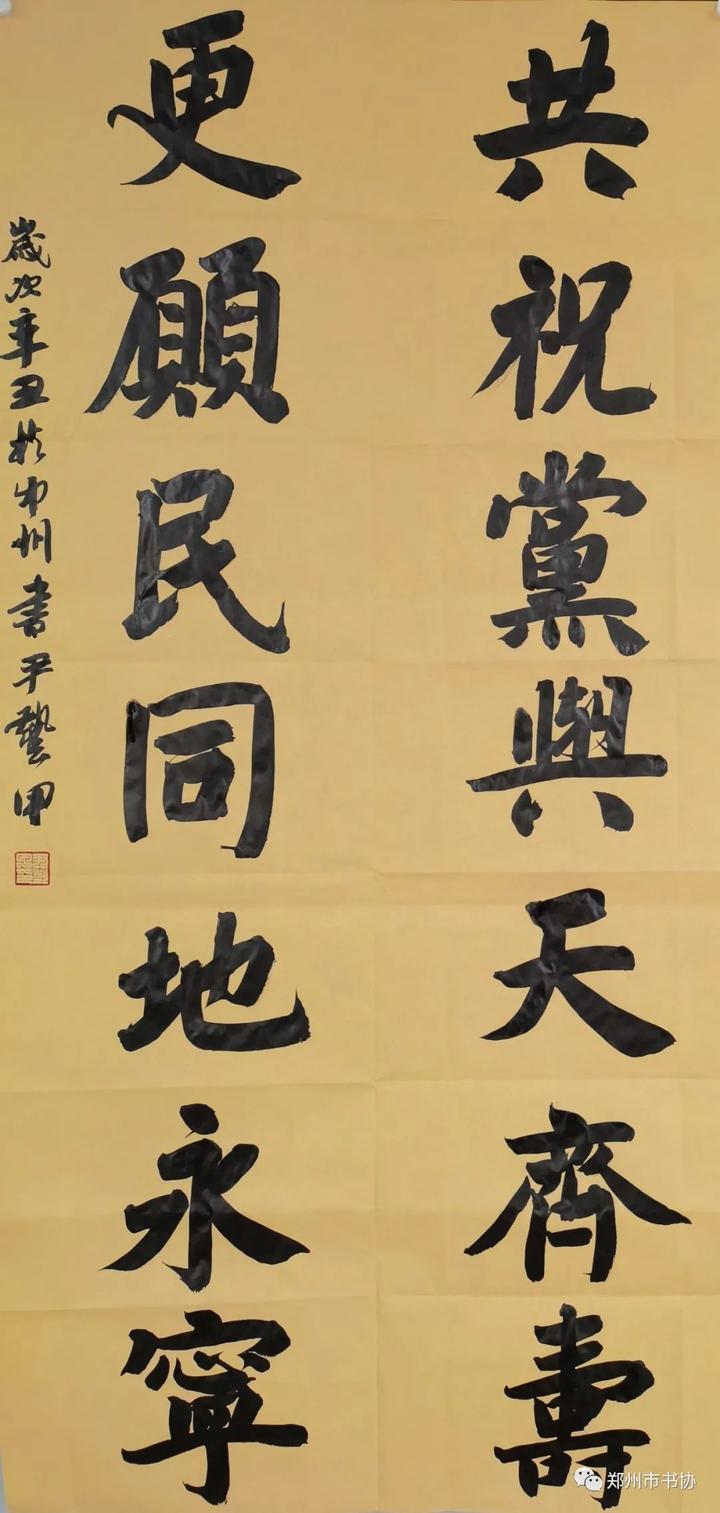 共祝黨與天齊壽
更願民同地永寧
歲次辛丑於中州書尹藝甲
郑州市书协